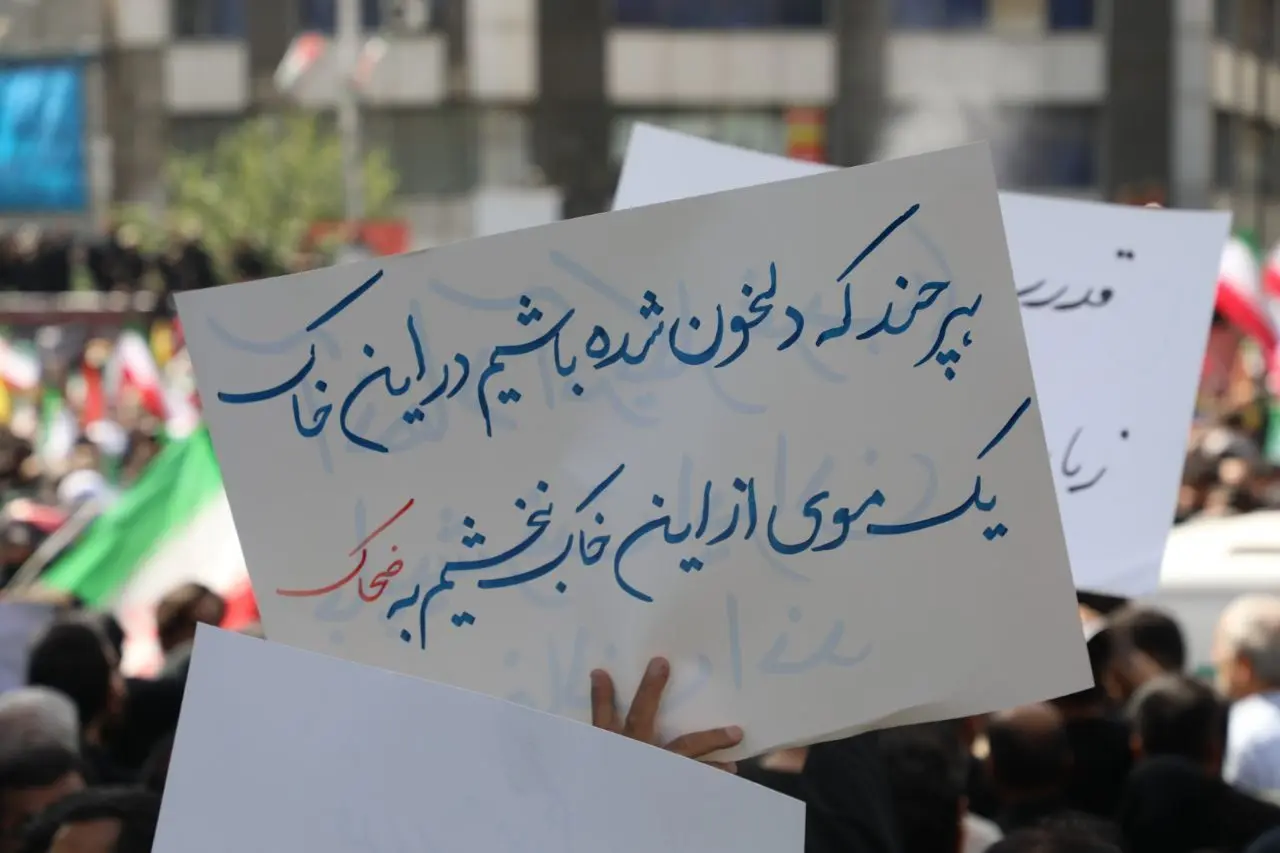 هر چند که دلخون شده باشیم در این خاک
یک موی از این خاک نبخشیم به ضحاک